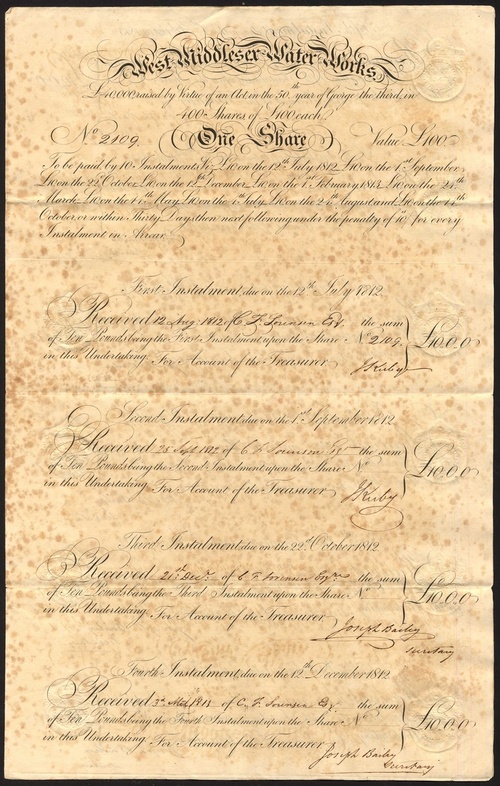 West Middlesex Water Works
£40,000 raised by Virtue of an Act, in the 50th year of George the third, in
400 Shares of £100 each.
No. 2109. One Share Value £100
To be paid by 10 Instalments, Viz. £10 on the 12th July 1812, £10 on the 1st September,
£10 on the 22d October, £10 on the 12th December, £10 on the 1st February 1813, £10 on the 24th
March, £10 on the May, £10 on the July, £10 on the August and £10 on the
October, or within Thirty Days then next following under the penalty of for every
Instalment in Arrear.
First Instalment, due on the 12th July 1812.
Received 12 Aug: 1812 of C F Sorensen Esqr. the sum
of Ten Pounds being the First Instalment upon the Share No 2109
in this Undertaking. For Account of the Treasurer
£10.0.0
J Kirby
Second Instalment, due on the 1st September 1812.
Received 25 Sept 1812 of C F Sorensen Esq the sum
of Ten Pounds being the Second Instalment upon the Share No
in this Undertaking. For Account of the Treasurer
£10.0.0
J Kirby
Third Instalment, due on the 22d October 1812.
Received 21st Decr. of C F Sorensen Esqr the sum
of Ten Pounds being the Third Instalment upon the Share No
in this Undertaking. For Account of the Treasurer
£10.0.0
Joseph Bailey
Secretary
Fourth Instalment, due on the 12th December 1812.
Received of C. F. Sorensen Esqr. the sum
of Ten Pounds being the Fourth Instalment upon the Share No
in this Undertaking. For Account of the Treasurer
£10.0.0
Joseph Bailey
Secretary